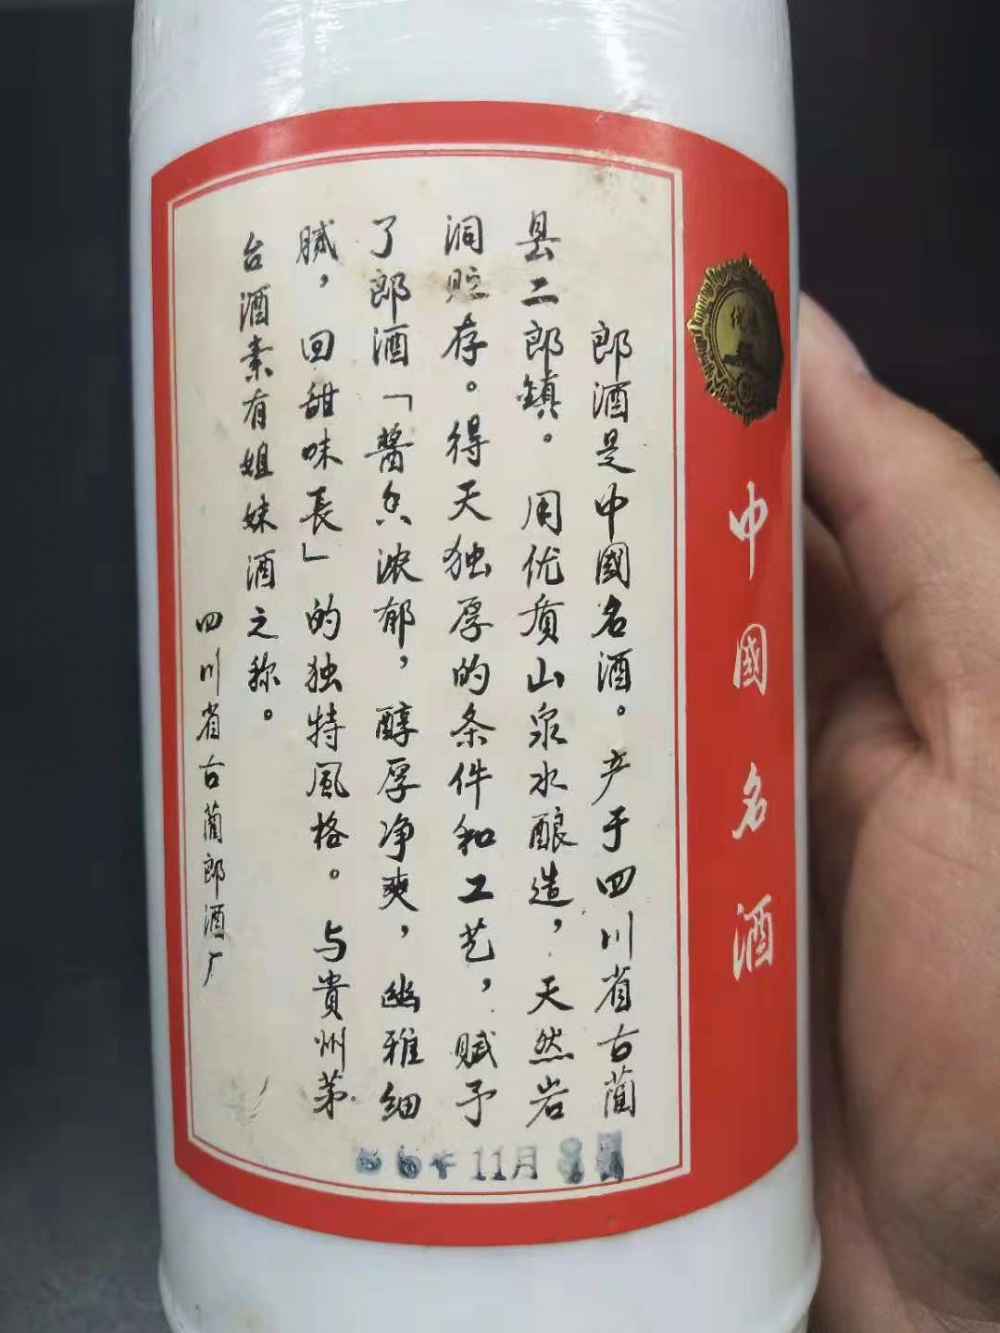 中國名酒
郎酒是中國名酒。产于四川省古蔺
县二郎鎮。用优质山泉水酿造，天然岩
洞贮存。得天独厚的条件和工艺，赋予
了郎酒「醬香浓郁，醇厚净爽，幽雅细
腻，回甜味長」的独特風格。与貴州茅
台酒素有姐妹酒之称。
四川省古蔺郎酒厂
86年11月8日